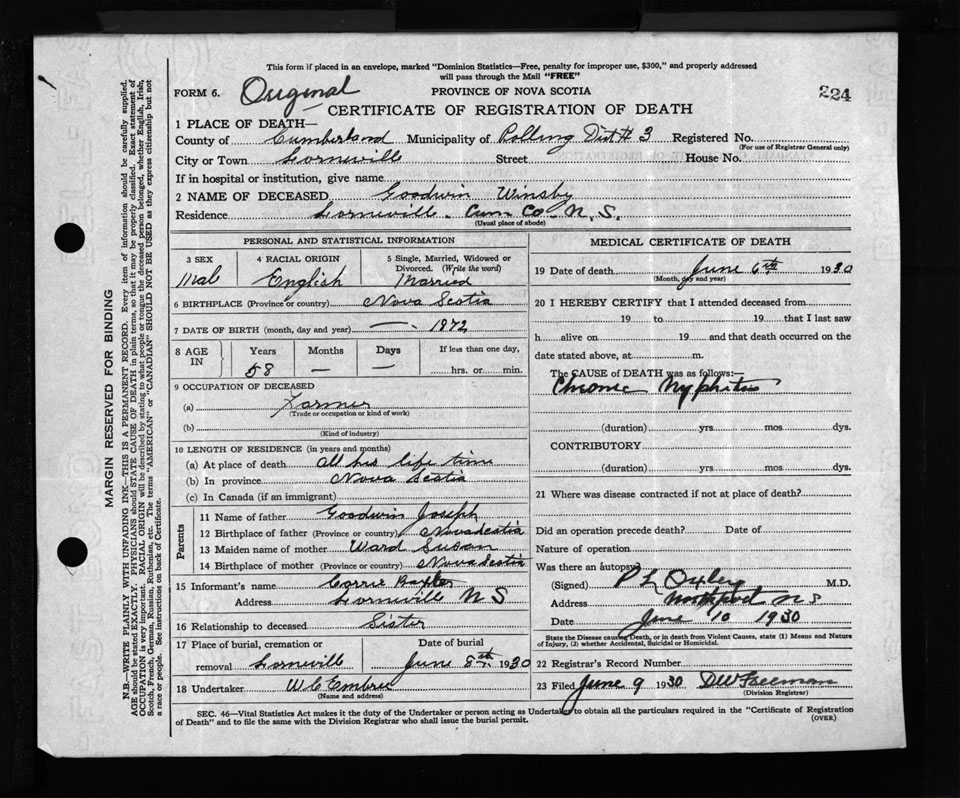 This form if placed in an envelope, marked "Dominion Statistics—Free, penalty for improper use, $300," and properly addressed
will pass through the Mail "FREE"
FORM 6. Original PROVINCE OF NOVA SCOTIA 224
CERTIFICATE OF REGISTRATION OF DEATH
1 PLACE OF DEATH—
County of Cumberland Municipality of Polling Dist # 3 Registered No.
(For use of Registrar General only)
City or Town Lorneville Street House No.
If in hospital or institution, give name
2 NAME OF DECEASED Goodwin Winsby
Residence Lorneville - Cum- Co- N. S.
(Usual place of abode)
PERSONAL AND STATISTICAL INFORMATION
3 SEX 4 RACIAL ORIGIN 5 Single, Married, Widowed or
Divorced. (Write the word)
Mal English Married
6 BIRTHPLACE (Province or country) Nova Scotia
7 DATE OF BIRTH (month, day and year) —. 1872
8 AGE IN Years Months Days If less than one day,
58 — — hrs. or min.
9 OCCUPATION OF DECEASED
(a) Farmer
(Trade or occupation or kind of work)
(b)
(Kind of industry)
10 LENGTH OF RESIDENCE (in years and months)
(a) At place of death all his life time
(b) In province Nova Scotia
(c) In Canada (if an immigrant)
Parents
11 Name of father Goodwin Joseph
12 Birthplace of father (Province or country) Nova Scotia
13 Maiden name of mother Ward Susan
14 Birthplace of mother (Province or country) Nova Scotia
15 Informant's name Carrie Baxter
Address Lorneville N S
16 Relationship to deceased Sister
17 Place of burial, cremation or Date of burial
removal Lorneville June 8th 1930
18 Undertaker W C Embree
(Name and address)
MEDICAL CERTIFICATE OF DEATH
19 Date of death June 6th 1930
(Month, day and year)
20 I HEREBY CERTIFY that I attended deceased from
19 to 19 that I last saw
h alive on 19 and that death occurred on the
date stated above, at m.
The CAUSE OF DEATH was as follows:—
Chronic Nyphitis
(duration) yrs mos dys.
CONTRIBUTORY
(duration) yrs mos dys.
21 Where was disease contracted if not at place of death?
Did an operation precede death? Date of
Nature of operation
Was there an autopsy
(Signed) P L Oxley M.D.
Address Northport N S
Date June 10 1930
State the Disease causing Death, or in death from Violent Causes, state (1) Means and Nature
of Injury, (2) whether Accidental, Suicidal or Homicidal.
22 Registrar's Record Number
23 Filed June 9 1930 DW Freeman
(Division Registrar)
SEC. 46—Vital Statistics Act makes it the duty of the Undertaker or person acting as Undertaker to obtain all the particulars required in the "Certificate of Registration
of Death" and to file the same with the Division Registrar who shall issue the burial permit.
(OVER)
MARGIN RESERVED FOR BINDING
N.B.—WRITE PLAINLY WITH UNFADING INK—THIS IS A PERMANENT RECORD. Every item of information should be carefully supplied.
AGE should be stated EXACTLY. PHYSICIANS should STATE CAUSE OF DEATH in plain terms, so that it may be properly classified. Exact statement of
OCCUPATION is very important. RACIAL ORIGIN will be described by stating to what people or tongue the deceased person belonged, whether English, Irish,
Scotch, French, German, Russian, Ruthenian, etc. The terms "AMERICAN" or "CANADIAN" SHOULD NOT BE USED as they express citizenship but not
a race or people. See instructions on back of Certificate.